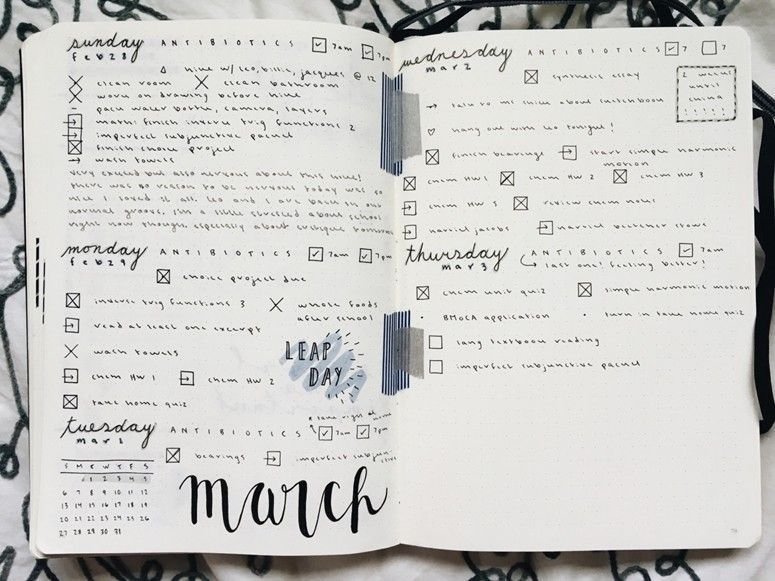 sunday ANTIBIOTICS 7am 7pm
feb 28
hike w/ leo, billie, jacques @ 12
clean room clean bathroom
work on drawing before hike
pack water bottle, camera, layers
math: finish inverse trig functions 2
imperfect subjunctive packet
finish choice project
wash towels
very excited but also nervous about this hike!
there was no reason to be nervous today was so
nice I loved it all. leo and I are back in our
normal groove. I'm a little stressed about school
right now though, especially about critique tomorrow
monday ANTIBIOTICS 7am 7pm
feb 29
choice project due
inverse trig functions 3 whole foods
after school
read at least one excerpt
LEAP
DAY
wash towels
chem HW 1 chem HW 2
take home quiz
tuesday ANTIBIOTICS 7am 7pm
mar 1
* take right at home
bearings imperfect subjunctive
S M T W T F S
1 2 3 4 5
6 7 8 9 10 11 12
13 14 15 16 17 18 19
20 21 22 23 24 25 26
27 28 29 30 31
march
wednesday ANTIBIOTICS 7 7
mar 2
synthesis essay
2 weeks
until
china
! ! ! ! !
talk to ms about sketchbook
hang out with leo tonight!
finish bearings start simple harmonic
motion
chem HW 1 chem HW 2 chem HW 3
chem HW 5 review chem notes
harriet jacobs harriet beecher stowe
thursday ANTIBIOTICS 7am
mar 3
last one! feeling better!
chem unit quiz simple harmonic motion
BMoCA application turn in take home quiz
lang textbook reading
imperfect subjunctive packet